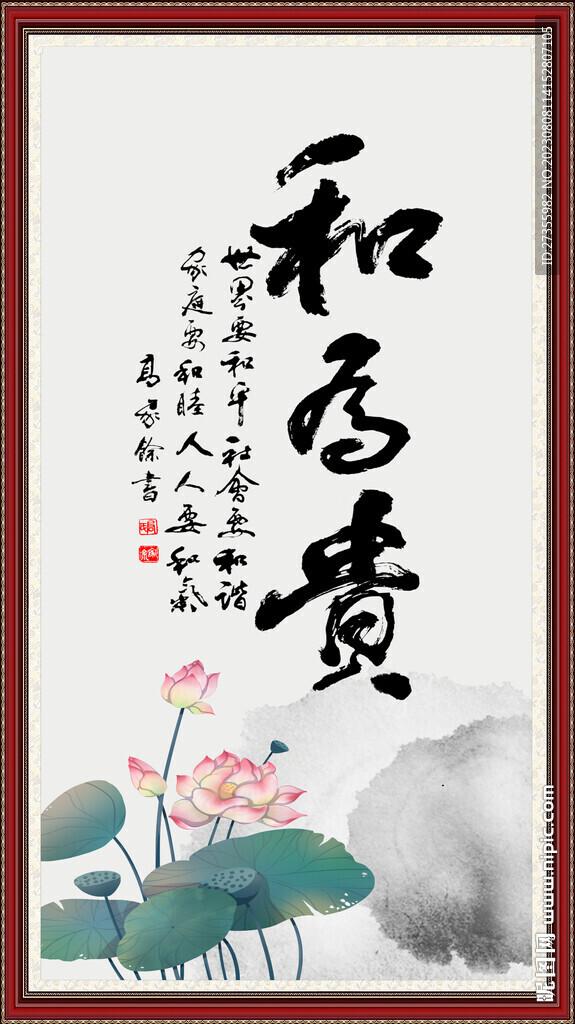 和為貴
世界要和平社會要和諧
家庭要和睦人人要和氣
高家餘書
ID:27355982 NO:20230808114152807105
昵图网 www.nipic.com